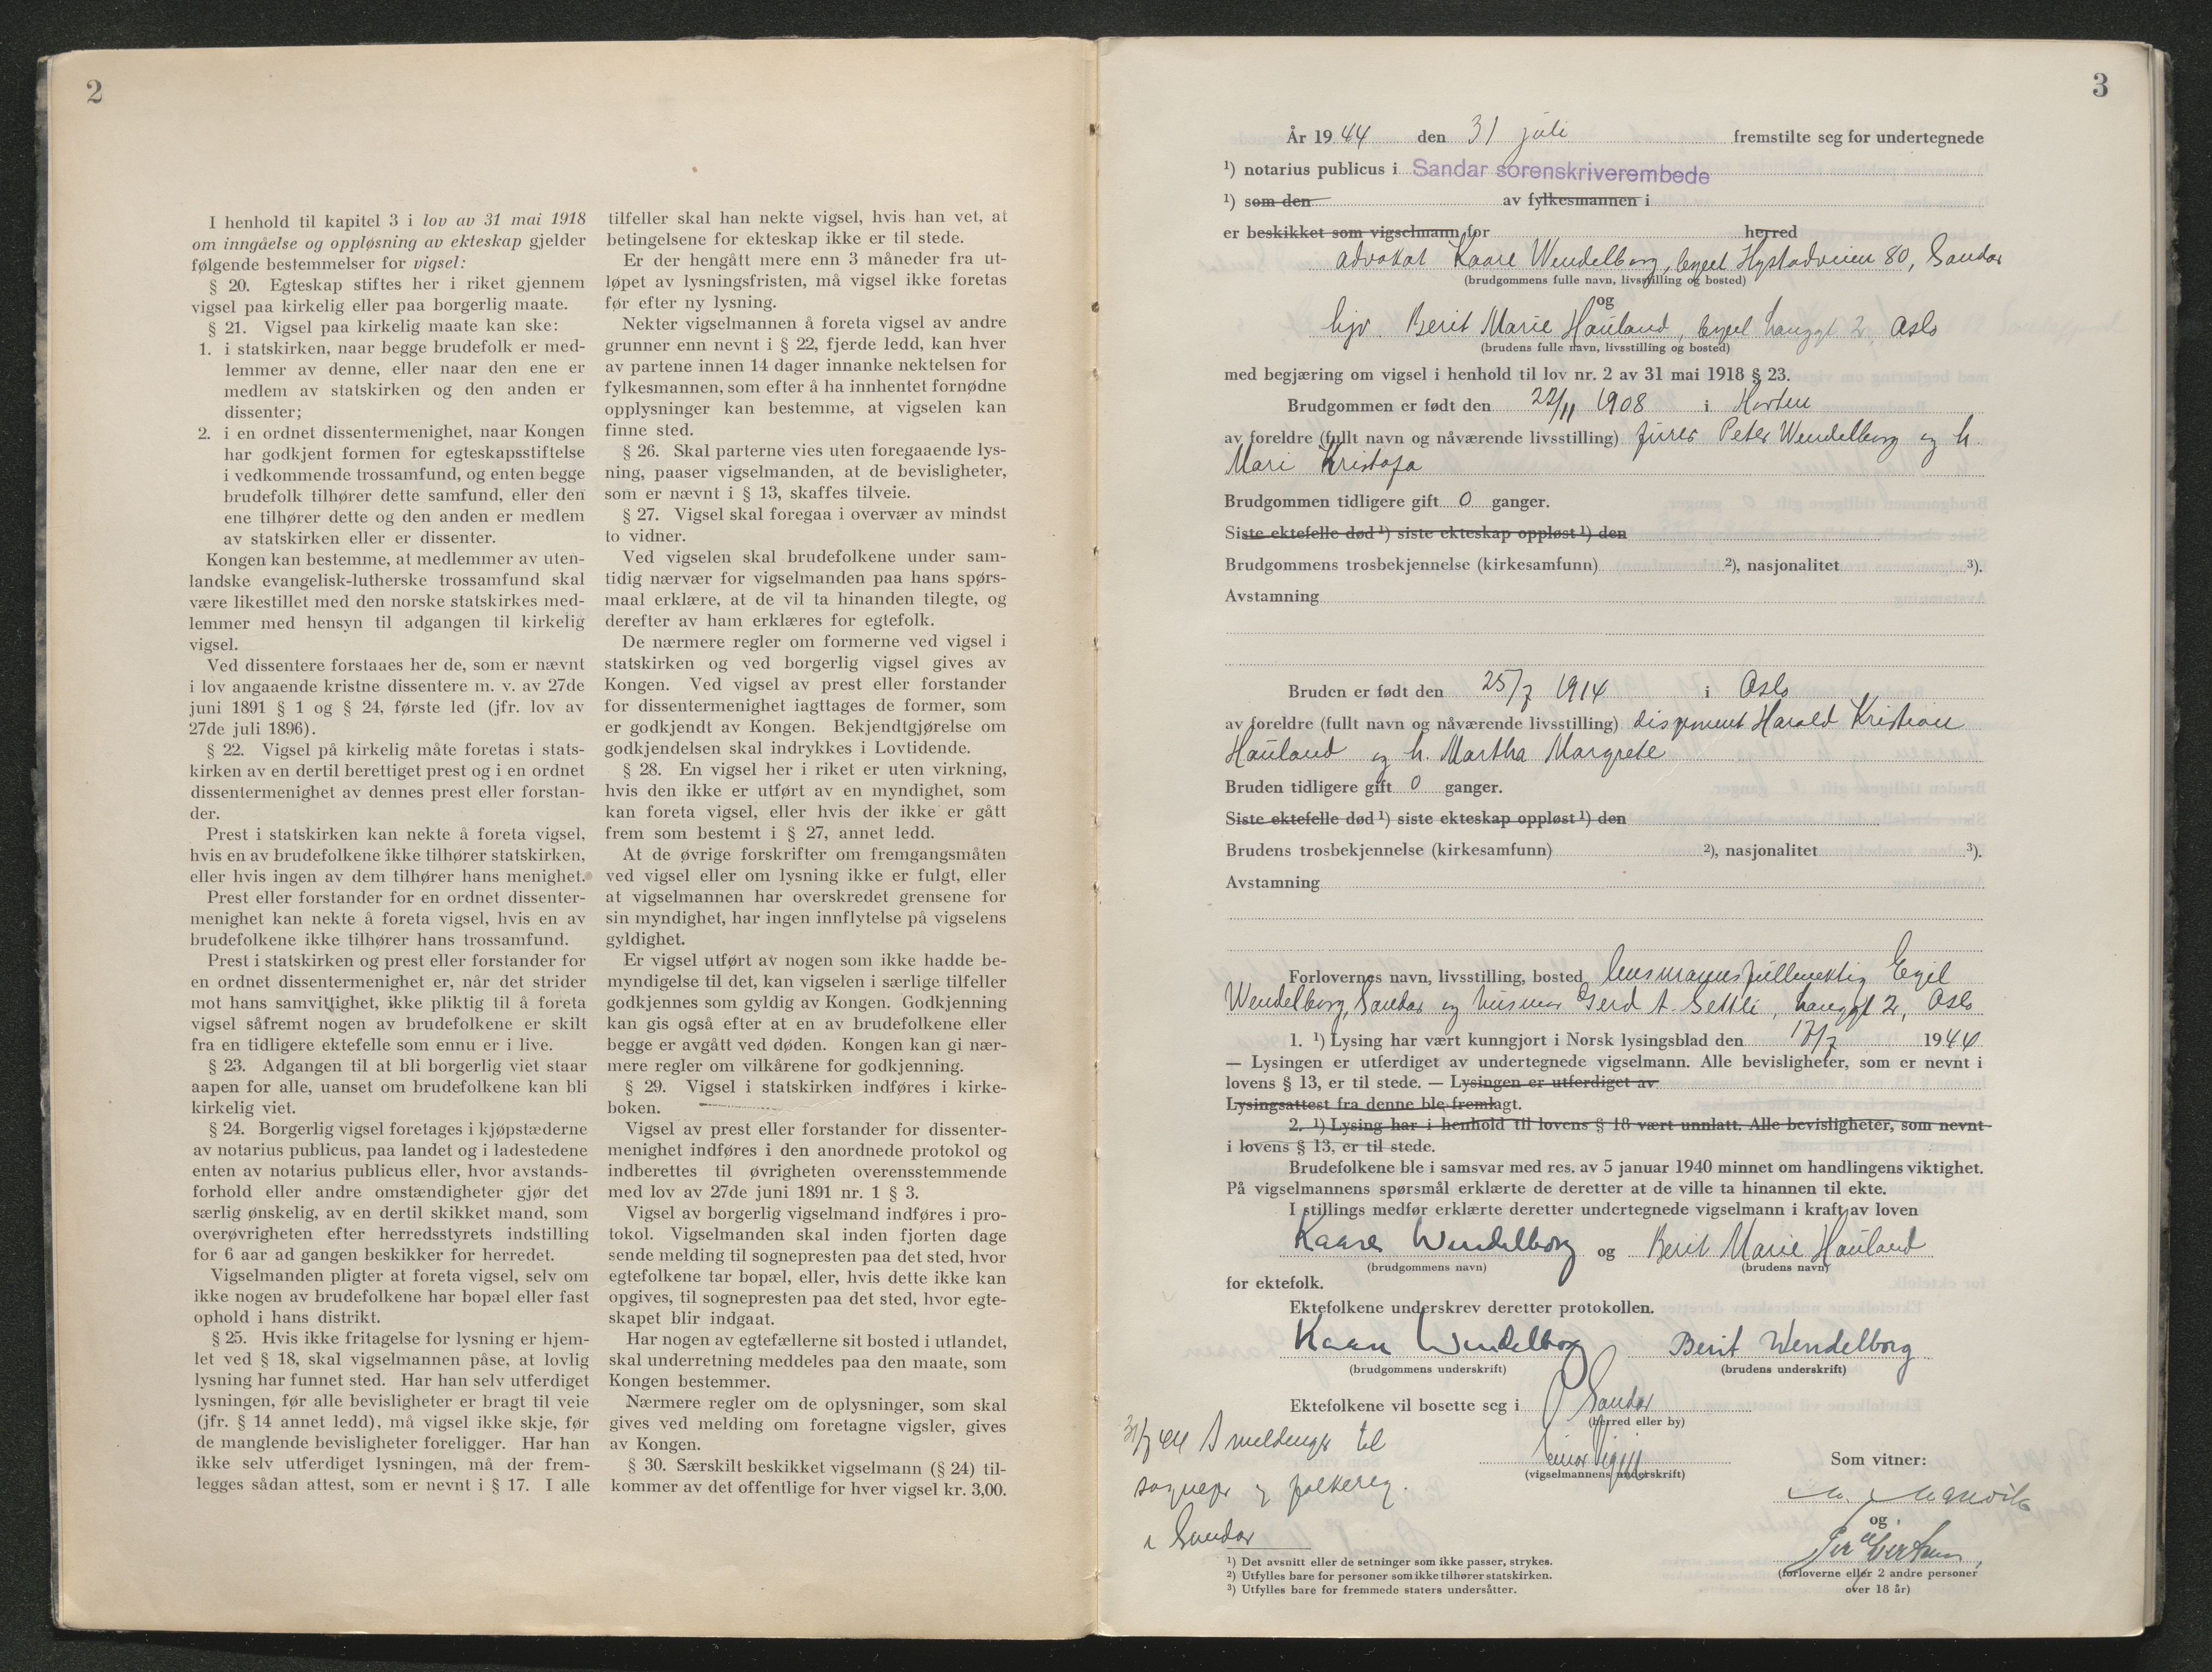 2
I henhold til kapitel 3 i lov av 31 mai 1918
om inngåelse og oppløsning av ekteskap gjelder
følgende bestemmelser for vigsel:
§ 20. Egteskap stiftes her i riket gjennem
vigsel paa kirkelig eller paa borgerlig maate.
§ 21. Vigsel paa kirkelig maate kan ske:
1. i statskirken, naar begge brudefolk er med-
lemmer av denne, eller naar den ene er
medlem av statskirken og den anden er
dissenter;
2. i en ordnet dissentermenighet, naar Kongen
har godkjent formen for egteskapsstiftelse
i vedkommende trossamfund, og enten begge
brudefolk tilhører dette samfund, eller den
ene tilhører dette og den anden er medlem
av statskirken eller er dissenter.
Kongen kan bestemme, at medlemmer av uten-
landske evangelisk-lutherske trossamfund skal
være likestillet med den norske statskirkes med-
lemmer med hensyn til adgangen til kirkelig
vigsel.
Ved dissentere forstaaes her de, som er nævnt
i lov angaaende kristne dissentere m. v. av 27de
juni 1891 § 1 og § 24, første led (jfr. lov av
27de juli 1896).
§ 22. Vigsel på kirkelig måte foretas i stats-
kirken av en dertil berettiget prest og i en ordnet
dissentermenighet av dennes prest eller forstan-
der.
Prest i statskirken kan nekte å foreta vigsel,
hvis en av brudefolkene ikke tilhører statskirken,
eller hvis ingen av dem tilhører hans menighet.
Prest eller forstander for en ordnet dissenter-
menighet kan nekte å foreta vigsel, hvis en av
brudefolkene ikke tilhører hans trossamfund.
Prest i statskirken og prest eller forstander for
en ordnet dissentermenighet er, når det strider
mot hans samvittighet, ikke pliktig til å foreta
vigsel såfremt nogen av brudefolkene er skilt
fra en tidligere ektefelle som ennu er i live.
§ 23. Adgangen til at bli borgerlig viet staar
aapen for alle, uanset om brudefolkene kan bli
kirkelig viet.
§ 24. Borgerlig vigsel foretages i kjøpstæderne
av notarius publicus, paa landet og i ladestedene
enten av notarius publicus eller, hvor avstands-
forhold eller andre omstændigheter gjør det
særlig ønskelig, av en dertil skikket mand, som
overøvrigheten efter herredsstyrets indstilling
for 6 aar ad gangen beskikker for herredet.
Vigselmanden pligter at foreta vigsel, selv om
ikke nogen av brudefolkene har bopæl eller fast
ophold i hans distrikt.
§ 25. Hvis ikke fritagelse for lysning er hjem-
let ved § 18, skal vigselmannen påse, at lovlig
lysning har funnet sted. Har han selv utferdiget
lysningen, før alle bevisligheter er bragt til veie
(jfr. § 14 annet ledd), må vigsel ikke skje, før
de manglende bevisligheter foreligger. Har han
ikke selv utferdiget lysningen, må der frem-
legges sådan attest, som er nevnt i § 17. I alle
tilfeller skal han nekte vigsel, hvis han vet, at
betingelsene for ekteskap ikke er til stede.
Er der hengått mere enn 3 måneder fra ut-
løpet av lysningsfristen, må vigsel ikke foretas
før efter ny lysning.
Nekter vigselmannen å foreta vigsel av andre
grunner enn nevnt i § 22, fjerde ledd, kan hver
av partene innen 14 dager innanke nektelsen for
fylkesmannen, som efter å ha innhentet fornødne
opplysninger kan bestemme, at vigselen kan
finne sted.
§ 26. Skal parterne vies uten foregaaende lys-
ning, paaser vigselmanden, at de bevisligheter,
som er nævnt i § 13, skaffes tilveie.
§ 27. Vigsel skal foregaa i overvær av mindst
to vidner.
Ved vigselen skal brudefolkene under sam-
tidig nærvær for vigselmanden paa hans spørs-
maal erklære, at de vil ta hinanden tilegte, og
derefter av ham erklæres for egtefolk.
De nærmere regler om formerne ved vigsel i
statskirken og ved borgerlig vigsel gives av
Kongen. Ved vigsel av prest eller forstander
for dissentermenighet iagttages de former, som
er godkjendt av Kongen. Bekjendtgjørelse om
godkjendelsen skal indrykkes i Lovtidende.
§ 28. En vigsel her i riket er uten virkning,
hvis den ikke er utført av en myndighet, som
kan foreta vigsel, eller hvis der ikke er gått
frem som bestemt i § 27, annet ledd.
At de øvrige forskrifter om fremgangsmåten
ved vigsel eller om lysning ikke er fulgt, eller
at vigselmannen har overskredet grensene for
sin myndighet, har ingen innflytelse på vigselens
gyldighet.
Er vigsel utført av nogen som ikke hadde be-
myndigelse til det, kan vigselen i særlige tilfeller
godkjennes som gyldig av Kongen. Godkjenning
kan gis også efter at en av brudefolkene eller
begge er avgått ved døden. Kongen kan gi nær-
mere regler om vilkårene for godkjenning.
§ 29. Vigsel i statskirken indføres i kirke-
boken.
Vigsel av prest eller forstander for dissenter-
menighet indføres i den anordnede protokol og
indberettes til øvrigheten overensstemmende
med lov av 27de juni 1891 nr. 1 § 3.
Vigsel av borgerlig vigselmand indføres i pro-
tokol. Vigselmanden skal inden fjorten dage
sende melding til sognepresten paa det sted, hvor
egtefolkene tar bopæl, eller, hvis dette ikke kan
opgives, til sognepresten paa det sted, hvor egte-
skapet blir indgaat.
Har nogen av egtefællerne sit bosted i utlandet,
skal underretning meddeles paa den maate, som
Kongen bestemmer.
Nærmere regler om de oplysninger, som skal
gives ved melding om foretagne vigsler, gives
av Kongen.
§ 30. Særskilt beskikket vigselmann (§ 24) til-
kommer av det offentlige for hver vigsel kr. 3,00.
3
År 1944 den 31 juli fremstilte seg for undertegnede
¹) notarius publicus i Sandar sorenskriverembede
¹) som den av fylkesmannen i
er beskikket som vigselmann for herred
advokat Kaare Wendelborg, Hystadveien 80, Sandar
(brudgommens fulle navn, livsstilling og bosted)
og
Berit Marie Hauland, Langgt 2, Oslo
(brudens fulle navn, livsstilling og bosted)
med begjæring om vigsel i henhold til lov nr. 2 av 31 mai 1918 § 23.
Brudgommen er født den 22/11 1908 i Horten
av foreldre (fullt navn og nåværende livsstilling) Peter Wendelborg og h.
Mari Kristofa
Brudgommen tidligere gift 0 ganger.
Siste ektefelle død ¹) siste ekteskap oppløst ¹) den
Brudgommens trosbekjennelse (kirkesamfunn) ²), nasjonalitet ³).
Avstamning
Bruden er født den 25/7 1914 i Oslo
av foreldre (fullt navn og nåværende livsstilling) disponent Harald Kristian
Hauland og h. Martha Margrete
Bruden tidligere gift 0 ganger.
Siste ektefelle død ¹) siste ekteskap oppløst ¹) den
Brudens trosbekjennelse (kirkesamfunn) ²), nasjonalitet ³).
Avstamning
Forlovernes navn, livsstilling, bosted lensmannsfullmektig Egil
Wendelborg, Sandar og husmor Gerd A. Settli, Langgt 2, Oslo
1. ¹) Lysing har vært kunngjort i Norsk lysingsblad den 17/7 1944
— Lysingen er utferdiget av undertegnede vigselmann. Alle bevisligheter, som er nevnt i
lovens § 13, er til stede. — Lysingen er utferdiget av
Lysingsattest fra denne ble fremlagt.
2. ¹) Lysing har i henhold til lovens § 18 vært unnlatt. Alle bevisligheter, som nevnt
i lovens § 13, er til stede.
Brudefolkene ble i samsvar med res. av 5 januar 1940 minnet om handlingens viktighet.
På vigselmannens spørsmål erklærte de deretter at de ville ta hinannen til ekte.
I stillings medfør erklærte deretter undertegnede vigselmann i kraft av loven
Kaare Wendelborg og Berit Marie Hauland
(brudgommens navn) (brudens navn)
for ektefolk.
Ektefolkene underskrev deretter protokollen.
Kaare Wendelborg Berit Wendelborg
(brudgommens underskrift) (brudens underskrift)
Ektefolkene vil bosette seg i Sandar
(herred eller by)
31/7 44 meldinger til
sognepr og folkereg.
i Sandar
(vigselmannens underskrift)
Som vitner:
og
(forloverne eller 2 andre personer
over 18 år)
¹) Det avsnitt eller de setninger som ikke passer, strykes.
²) Utfylles bare for personer som ikke tilhører statskirken.
³) Utfylles bare for fremmede staters undersåtter.